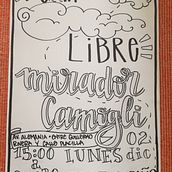 LIBRE
mirador
Camogli
AV. ALEMANIA - ENTRE GUILLERMO
RIVERA Y CALLE PLACILLA
02
15:00 LUNES dic
a